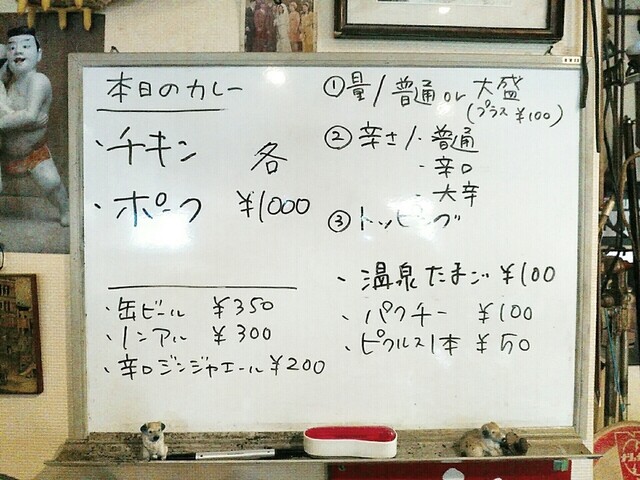 本日のカレー
・チキン
各
・ポーク ¥1000
・缶ビール ¥350
・ノンアル ¥300
・辛口ジンジャエール ¥200
①量/普通 or 大盛
(プラス ¥100)
②辛さ/・普通
・辛口
・大辛
③トッピング
・温泉たまご ¥100
・パクチー ¥100
・ピクルス1本 ¥50